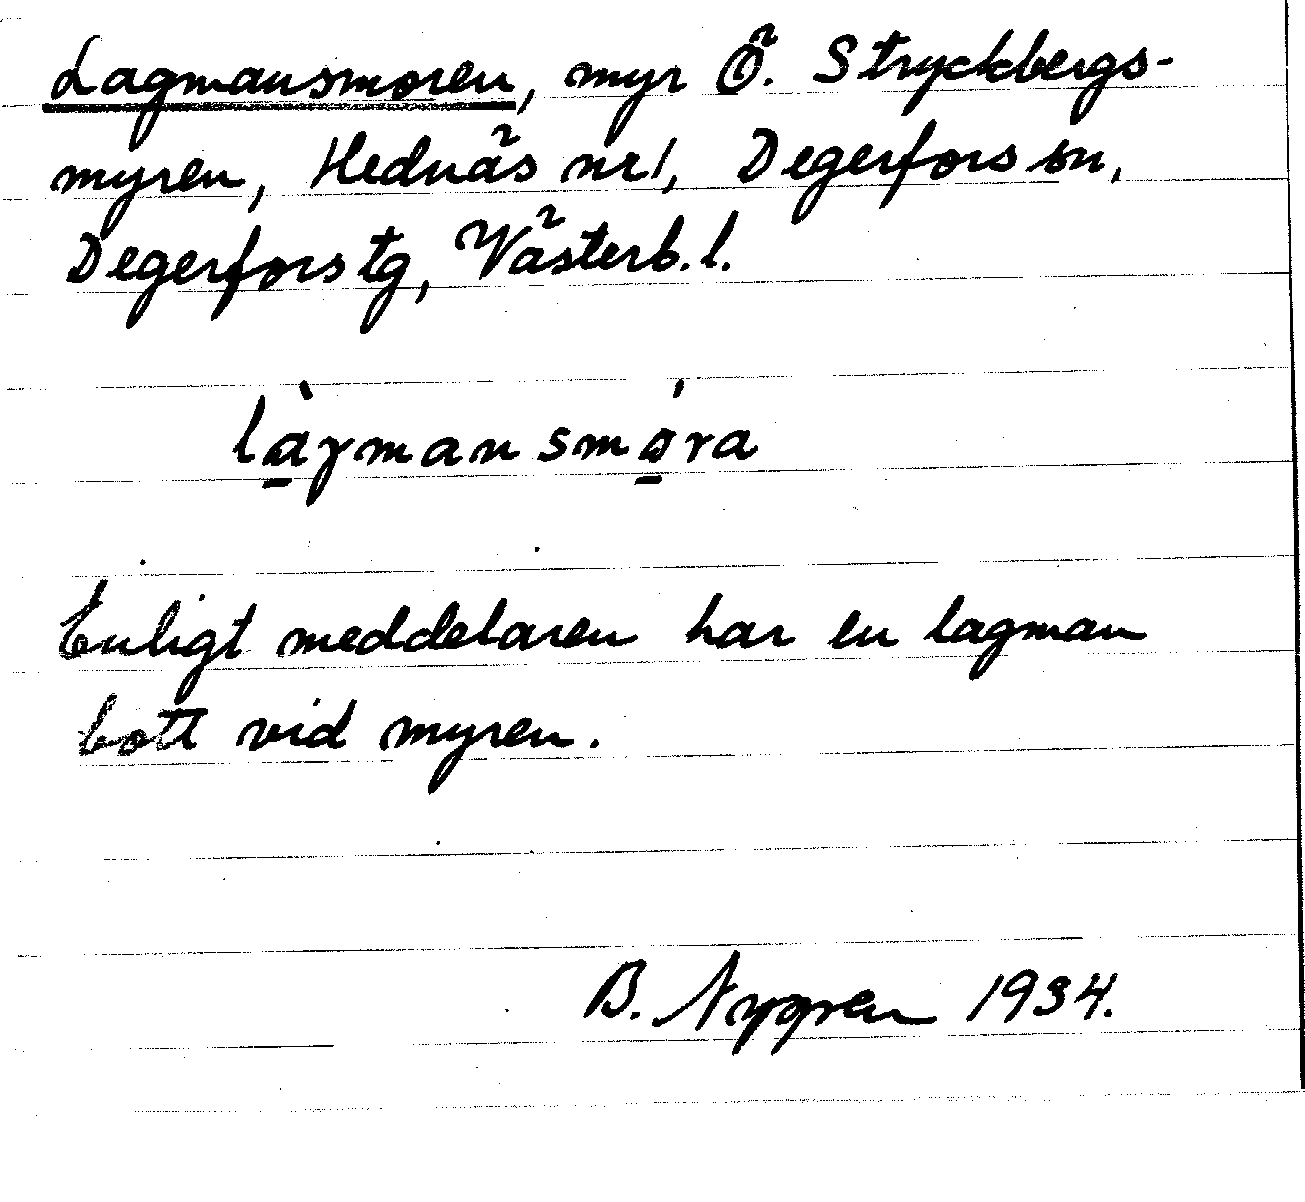 Lagmansmoren, myr Ö. Stryckbergs-
myren, Hednäs nr 1, Degerfors sn,
Degerfors tg, Västerb. l.
là̠γmansmǫ̠́ra
Enligt meddelaren har en lagman
bott vid myren.
B. Nygren 1934.